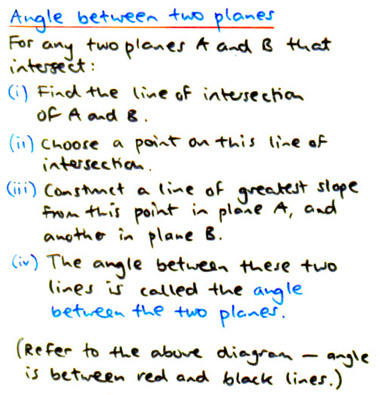 Angle between two planes
For any two planes A and B that
intersect:
(i) Find the line of intersection
of A and B.
(ii) Choose a point on this line of
intersection.
(iii) Construct a line of greatest slope
from this point in plane A, and
another in plane B.
(iv) The angle between these two
lines is called the angle
between the two planes.
(Refer to the above diagram – angle
is between red and black lines.)